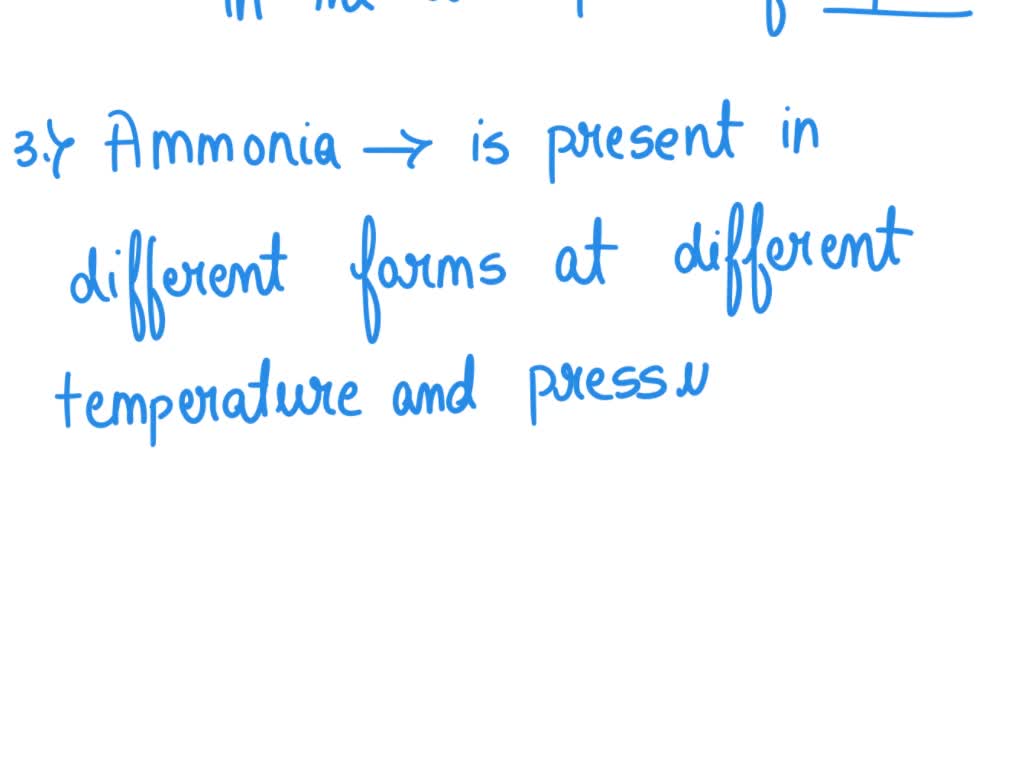 3.) Ammonia → is present in
different forms at different
temperature and pressu